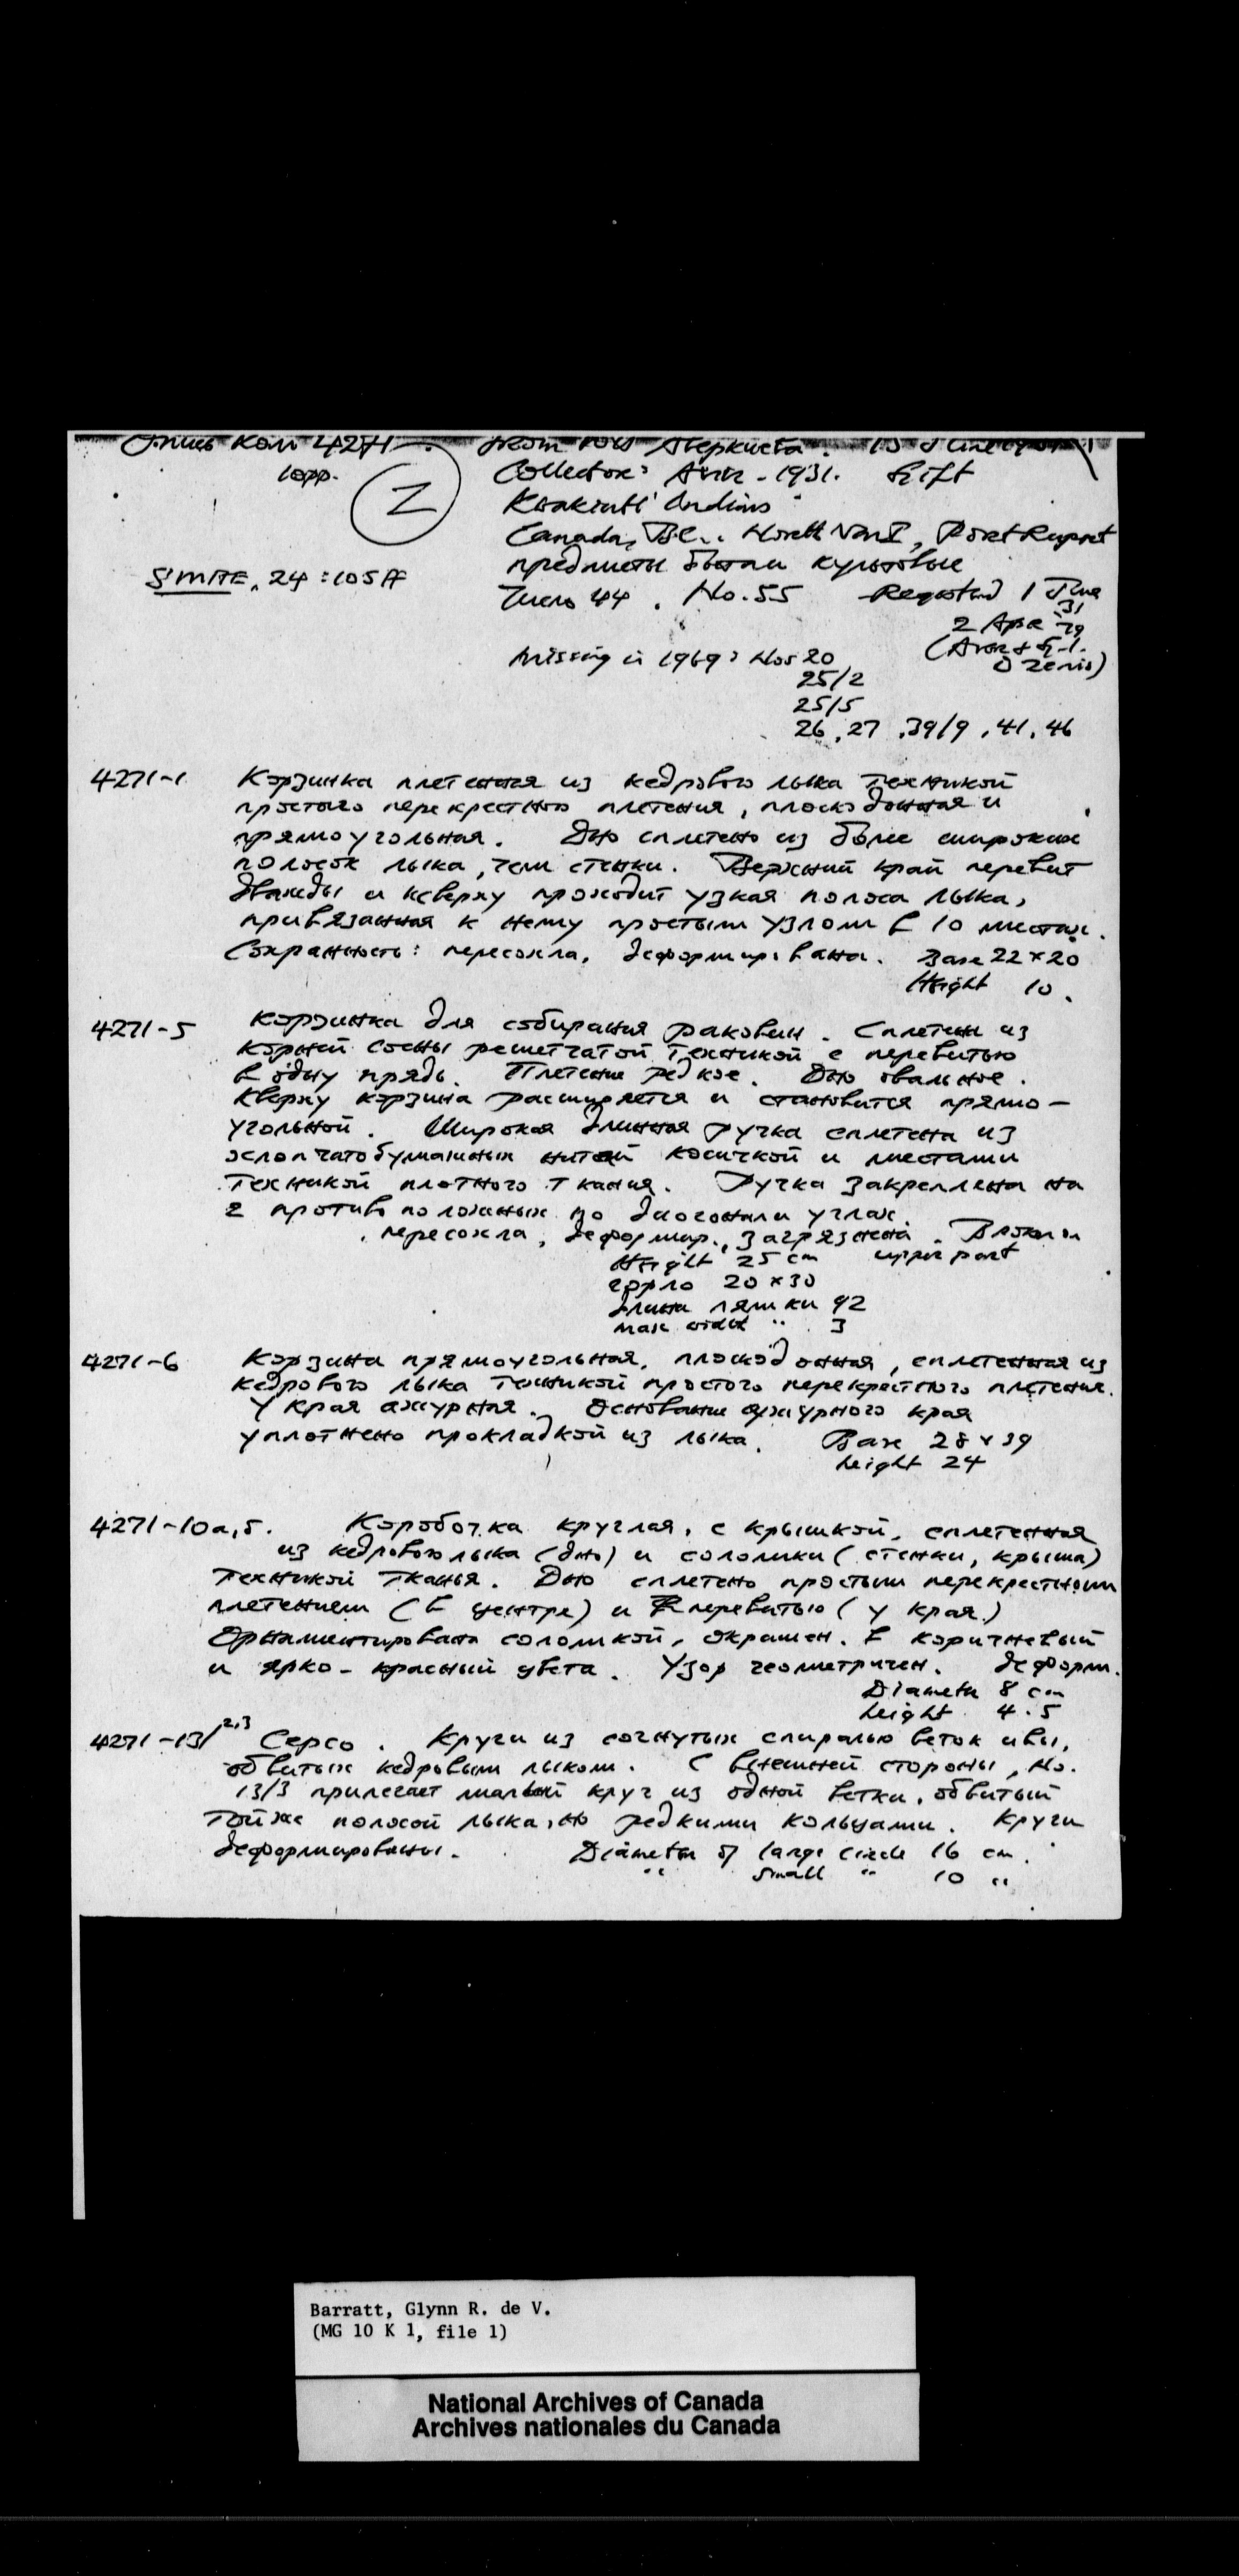 Опись Кол 4271 from
10pp. Collector: Averk - 1931. Gift
Z Kwakiutl Indians
Canada, B.C.. North Van I, Port Rupert
предметы быта и культовые
SMAE, 24:105ff
Число 44. No. 55 Registered 1 June
31
2 Apr 39
Missing in 1969: Nos 20
25/2
25/5
26, 27, 39/9, 41, 46
4271-1 Корзинка плетеная из кедрового лыка техникой
простого перекрестного плетения, плоскодонная и
прямоугольная. Дно сплетено из более широких
полосок лыка, чем стенки. Верхний край перевит
дважды и кверху проходит узкая полоса лыка,
привязанная к нему простым узлом в 10 местах.
Сохранность: пересохла, деформирована. Base 22 x 20
Height 10.
4271-5 Корзинка для собирания раковин. Сплетена из
корней сосны решетчатой техникой с перевитью
в одну прядь. Плетение редкое. Дно овальное.
Кверху корзина расширяется и становится прямо-
угольной. Широкая длинная ручка сплетена из
хлопчатобумажных нитей косичкой и местами
техникой плотного ткания. Ручка закреплена на
2 противоположных по диагонали углах.
пересохла, деформир., загрязнена. Broken in
Height 25 cm upper part
горло 20 x 30
длина лямки 92
max width " 3
4271-6 Корзина прямоугольная, плоскодонная, сплетенная из
кедрового лыка техникой простого перекрестного плетения.
У края ажурная. Основание ажурного края
уплотнено прокладкой из лыка. Base 28 x 39
height 24
4271-10а,б. Коробочка круглая, с крышкой, сплетенная
из кедрового лыка (дно) и соломки (стенки, крыша)
техникой тканья. Дно сплетено простым перекрестным
плетением (в центре) и перевитью (у края.)
Орнаментирована соломкой, окрашен. в коричневый
и ярко-красный цвета. Узор геометричен. деформ.
Diameter 8 cm
height 4.5
4271-13/2,3 Серсо. Круги из согнутых спиралью веток ивы,
обвитых кедровым лыком. С внешней стороны, No.
13/3 прилегает малый круг из одной ветки, обвитый
той же полосой лыка, но редкими кольцами. Круги
деформированы. Diameter of large circle 16 cm.
" small " 10 "
Barratt, Glynn R. de V.
(MG 10 K 1, file 1)
National Archives of Canada
Archives nationales du Canada